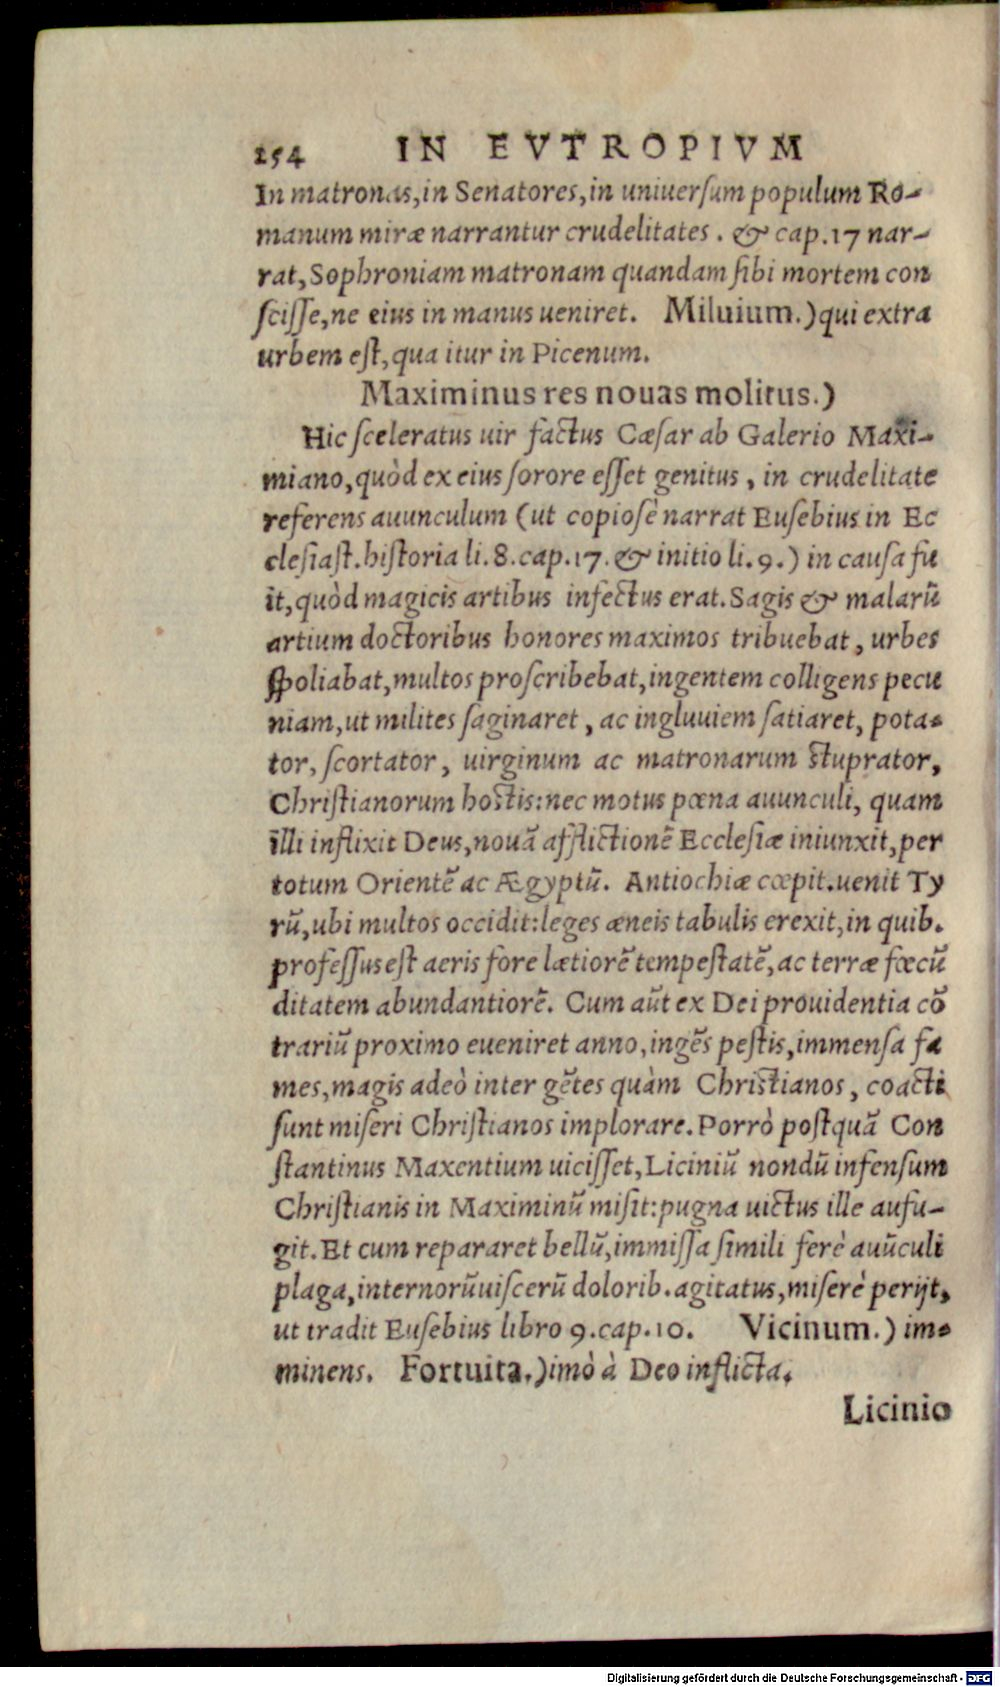 254 IN EVTROPIVM
In matronas, in Senatores, in uniuersum populum Ro-
manum miræ narrantur crudelitates. & cap. 17 nar-
rat, Sophroniam matronam quandam sibi mortem con
scisse, ne eius in manus ueniret. Miluium.) qui extra
urbem est, qua itur in Picenum.
Maximinus res nouas molitus.)
Hic sceleratus uir factus Cæsar ab Galerio Maxi-
miano, quòd ex eius sorore esset genitus, in crudelitate
referens auunculum (ut copiosè narrat Eusebius in Ec
clesiast. historia li. 8. cap. 17. & initio li. 9.) in causa fu
it, quòd magicis artibus infectus erat. Sagis & malarũ
artium doctoribus honores maximos tribuebat, urbes
spoliabat, multos proscribebat, ingentem colligens pecu
niam, ut milites saginaret, ac ingluuiem satiaret, pota-
tor, scortator, uirginum ac matronarum stuprator,
Christianorum hostis: nec motus pœna auunculi, quam
illi inflixit Deus, nouã afflictionẽ Ecclesiæ iniunxit, per
totum Orientẽ ac Ægyptũ. Antiochiæ cœpit. uenit Ty
rũ, ubi multos occidit: leges æneis tabulis erexit, in quib.
professus est aeris fore lætiorẽ tempestatẽ, ac terræ fœcũ
ditatem abundantiorẽ. Cum aũt ex Dei prouidentia cõ
trariũ proximo eueniret anno, ingẽs pestis, immensa fa
mes, magis adeò inter gẽtes quàm Christianos, coacti
sunt miseri Christianos implorare. Porrò postquã Con
stantinus Maxentium uicisset, Liciniũ nondũ infensum
Christianis in Maximinũ misit: pugna uictus ille aufu-
git. Et cum repararet bellũ, immissa simili ferè auũculi
plaga, internorũ uiscerũ dolorib. agitatus, miserè perijt,
ut tradit Eusebius libro 9. cap. 10. Vicinum.) im-
minens. Fortuita.) imò à Deo inflicta.
Licinio
Digitalisierung gefördert durch die Deutsche Forschungsgemeinschaft - DFG